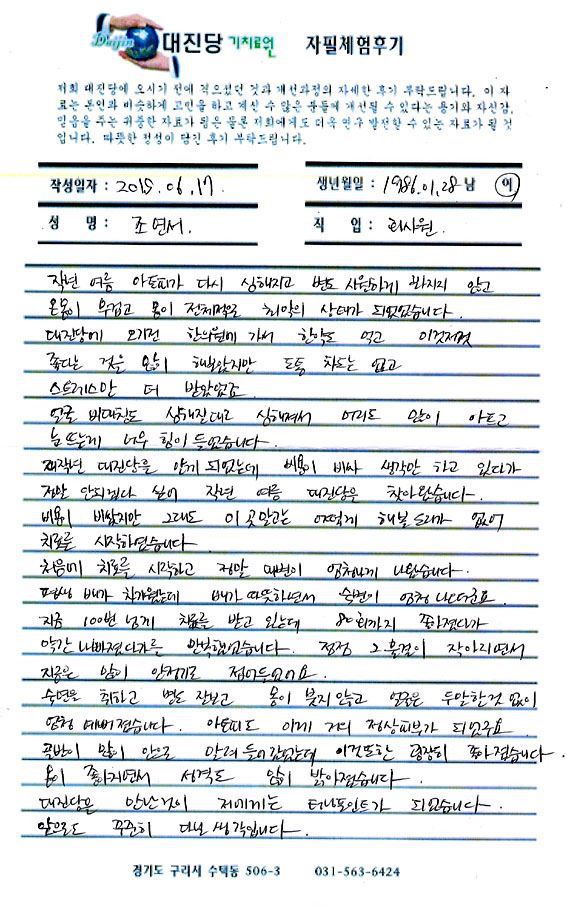 Daijin 대진당 기치료원 자필체험후기
저희 대진당에 오시기 전에 겪으셨던 것과 개선과정의 자세한 후기 부탁드립니다. 이 자
료는 본인과 비슷하게 고민을 하고 계신 수 많은 분들께 개선될 수 있다는 용기와 자신감,
믿음을 주는 귀중한 자료가 됨은 물론 저희에게도 더욱 연구 발전할 수 있는 자료가 될 것
입니다. 따뜻한 정성이 담긴 후기 부탁드립니다.
작성일자 : 2015. 06. 17. 생년월일 : 1986. 01. 28 남 여
성 명 : 조연서. 직 업 : 회사원.
작년 여름 아토피가 다시 심해지고 변도 시원하게 봐지지 않고
온몸이 무겁고 몸이 전체적으로 최악의 상태가 되었었습니다.
대진당에 오기전 한의원에 가서 한약도 먹고 이것저것
좋다는 것을 많이 해보았지만 도통 차도는 없고
스트레스만 더 받았었죠.
얼굴 비대칭도 심해질대로 심해져서 머리도 많이 아프고
눈 뜨는게 너무 힘이 들었습니다.
재작년 대진당을 알게 되었는데 비용이 비싸 생각만 하고 있다가
정말 안되겠다 싶어 작년 여름 대진당을 찾아왔습니다.
비용이 비쌌지만 그래도 이곳말고는 어떻게 해볼 도리가 없어
치료를 시작하였습니다.
처음에 치료를 시작하고 정말 대변이 엄청나게 나왔습니다.
평생 배가 차가웠는데 배가 따뜻하면서 숙변이 엄청 나더군요.
지금 100번 넘게 치료를 받고 있는데 80회까지 좋아졌다가
약간 나빠졌다가를 반복했었습니다. 점점 그 물결이 작아지면서
지금은 많이 안정기로 접어들었어요.
숙면을 취하고 변도 잘보고 몸이 붓지 않고 얼굴은 두말할것 없이
엄청 예뻐졌습니다. 아토피도 이제 거의 정상피부가 되었구요.
골반이 많이 안으로 말려 들어갔었는데 이것또한 굉장히 좋아졌습니다.
몸이 좋아지면서 성격도 많이 밝아졌습니다.
대진당을 만난것이 저에게는 터닝포인트가 되었습니다.
앞으로도 꾸준히 다닐 생각입니다.
경기도 구리시 수택동 506-3 031-563-6424